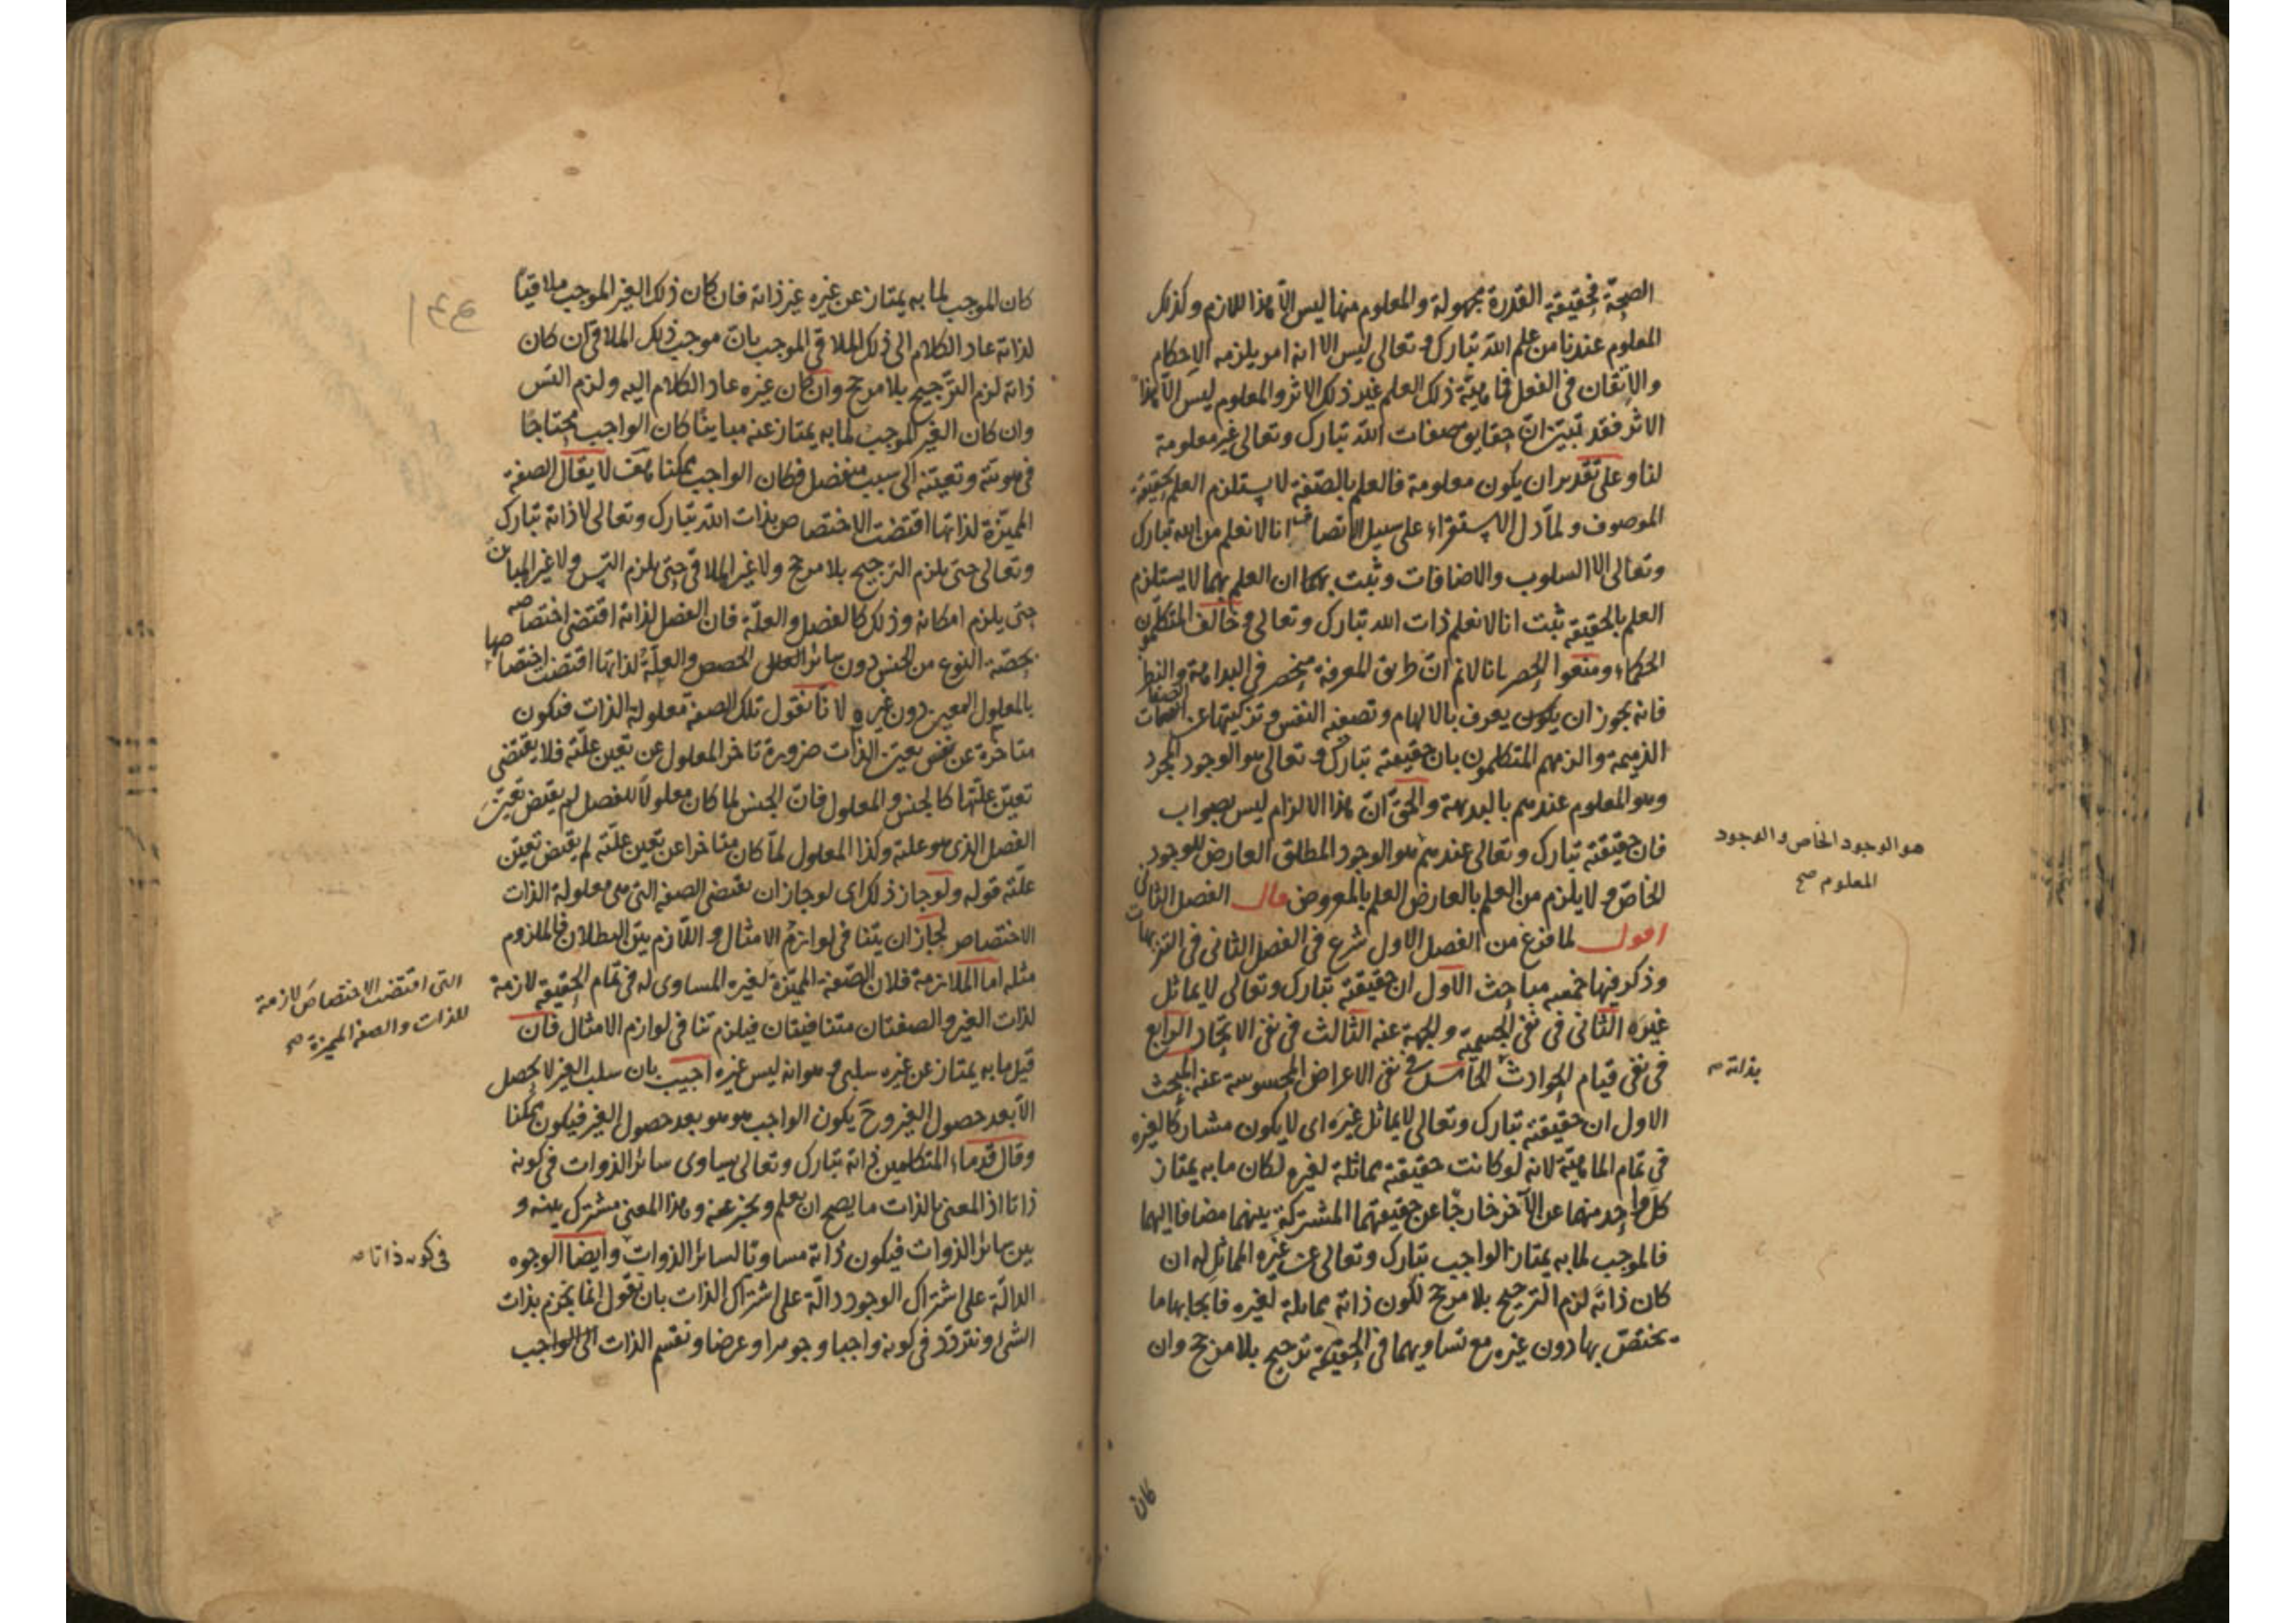 الصحة فحقيقة القدرة مجهولة والمعلوم منها ليس الا هذا اللازم وكذلك
المعلوم عندنا من علم الله تبارك وتعالى ليس الا انه امر يلزمه الاحكام
والاتقان في الفعل فماهية ذلك العلم غير ذلك الاثر والمعلوم ليس الا هذا
الاثر فقد تبين ان حقايق صفات الله تبارك وتعالى غير معلومة
لنا وعلى تقدير ان يكون معلومة فالعلم بالصفة لا يستلزم العلم بحقيقة
الموصوف ولما دل الاستقراء على سبيل الانصاف انا لا نعلم من الله تبارك
وتعالى الا السلوب والاضافات وثبت بهكا ان العلم بهما لا يستلزم
العلم بالحقيقة ثبت انا لا نعلم ذات الله تبارك وتعالى وخالف المتكلمون
الحكماء ومنعوا الحصر بانا لا نم ان طريق المعرفة منحصر في البداهة والنظر
فانه يجوز ان يكون يعرف بالالهام وتصفية النفس وتزكيتها عن الصفات
الذميمة والزمهم المتكلمون بان حقيقته تبارك وتعالى هو الوجود المجرد
وهو المعلوم عندهم بالبديهة والحق ان هذا الالزام ليس بصواب
فان حقيقته تبارك وتعالى عندهم هو الوجود المطلق العارض للوجود
الخاص ولا يلزم من العلم بالعارض العلم بالمعروض قال الفصل الثاني
اقول لما فرغ من الفصل الاول شرع في الفصل الثاني في التنزيهات
وذكر فيها خمسة مباحث الاول ان حقيقته تبارك وتعالى لا يماثل
غيره الثاني في نفي الجسمية والجهة عنه الثالث في نفي الاتحاد الرابع
في نفي قيام الحوادث الخامس في نفي الاعراض المحسوسة عنه المبحث
الاول ان حقيقته تبارك وتعالى لا يماثل غيره اى لا يكون مشاركا لغيره
في تمام الماهية لانه لو كانت حقيقته مماثلة لغيره لكان ما به يمتاز
كل واحد منهما عن الآخر خارجا عن حقيقتهما المشتركة بينهما مضافا اليهما
فالموجب لما به يمتاز الواجب تبارك وتعالى عن غيره المماثل له ان
كان ذاته لزم الترجيح بلا مرجح لكون ذاته مماثلة لغيره فايجابها ما
يختص بها دون غيره مع تساويهما في الحقيقة ترجيح بلا مرجح وان
كان
هو الوجود الخاص والوجود
المعلوم صح
بذاته
كان الموجب لما به يمتاز عن غيره غير ذاته فان كان ذلك الغير الموجب ملاقيا
لذاته عاد الكلام الى ذلك الملاقي الموجب بان موجب ذلك الملاقي ان كان
ذاته لزم الترجيح بلا مرجح وان كان غيره عاد الكلام اليه ولزم التس
وان كان الغير الموجب لما به يمتاز عنه مباينا كان الواجب محتاجا
في هويته وتعينه الى سبب منفصل فكان الواجب ممكنا هف لا يقال الصفة
المميزة لذاتها اقتضت الاختصاص بذات الله تبارك وتعالى لا ذاته تبارك
وتعالى حتى يلزم الترجيح بلا مرجح ولا غير الملاقي حتى يلزم التس ولا غير المباين
حتى يلزم امكانه وذلك كالفصل والعلة فان الفصل لذاته اقتضى اختصاصه
بحصة النوع من الجنس دون سائر الحصص والعلة لذاتها اقتضت اختصاصها
بالمعلول المعين دون غيره لا نا نقول تلك الصفة معلولة الذات فيكون
متاخرة عن تعين الذات ضرورة تاخر المعلول عن تعين علته فلا يقتضي
تعين علتها كالجنس والمعلول فان الجنس لما كان معلولا للفصل لم يقتض تعين
الفصل الذي هو علته وكذا المعلول لما كان متاخرا عن تعين علته لم يقتض تعين
علته قوله ولو جاز ذلك اى لو جاز ان يقتضى الصفة التي هي معلولة الذات
الاختصاص لجاز ان يتنافى لوازم الامثال واللازم بين البطلان فالملزوم
مثله اما الملازمة فلان الصفة المميزة لغيره المساوى له في تمام الحقيقة لازمة
لذات الغير والصفتان متنافيتان فيلزم تنافي لوازم الامثال فان
قيل ما به يمتاز عن غيره سلبي وهو انه ليس غيره اجيب بان سلب الغير لا يحصل
الا بعد حصول الغير وح يكون الواجب هو هو بعد حصول الغير فيكون ممكنا
وقال قدماء المتكلمين ذاته تبارك وتعالى يساوى سائر الذوات في كونه
ذاتا اذ المعنى بالذات ما يصح ان يعلم ويخبر عنه وهذا المعنى مشترك بينه و
بين سائر الذوات فيكون ذاته مساويا لسائر الذوات وايضا الوجوه
الدالة على اشتراك الوجود دالة على اشتراك الذات بان نقول انا نجزم بذات
الشئ ونتردد في كونه واجبا وجوهرا وعرضا ونقسم الذات الى الواجب
التي اقتضت الاختصاص لازمة
للذات والصفة المميزة صح
في كونه ذاتا